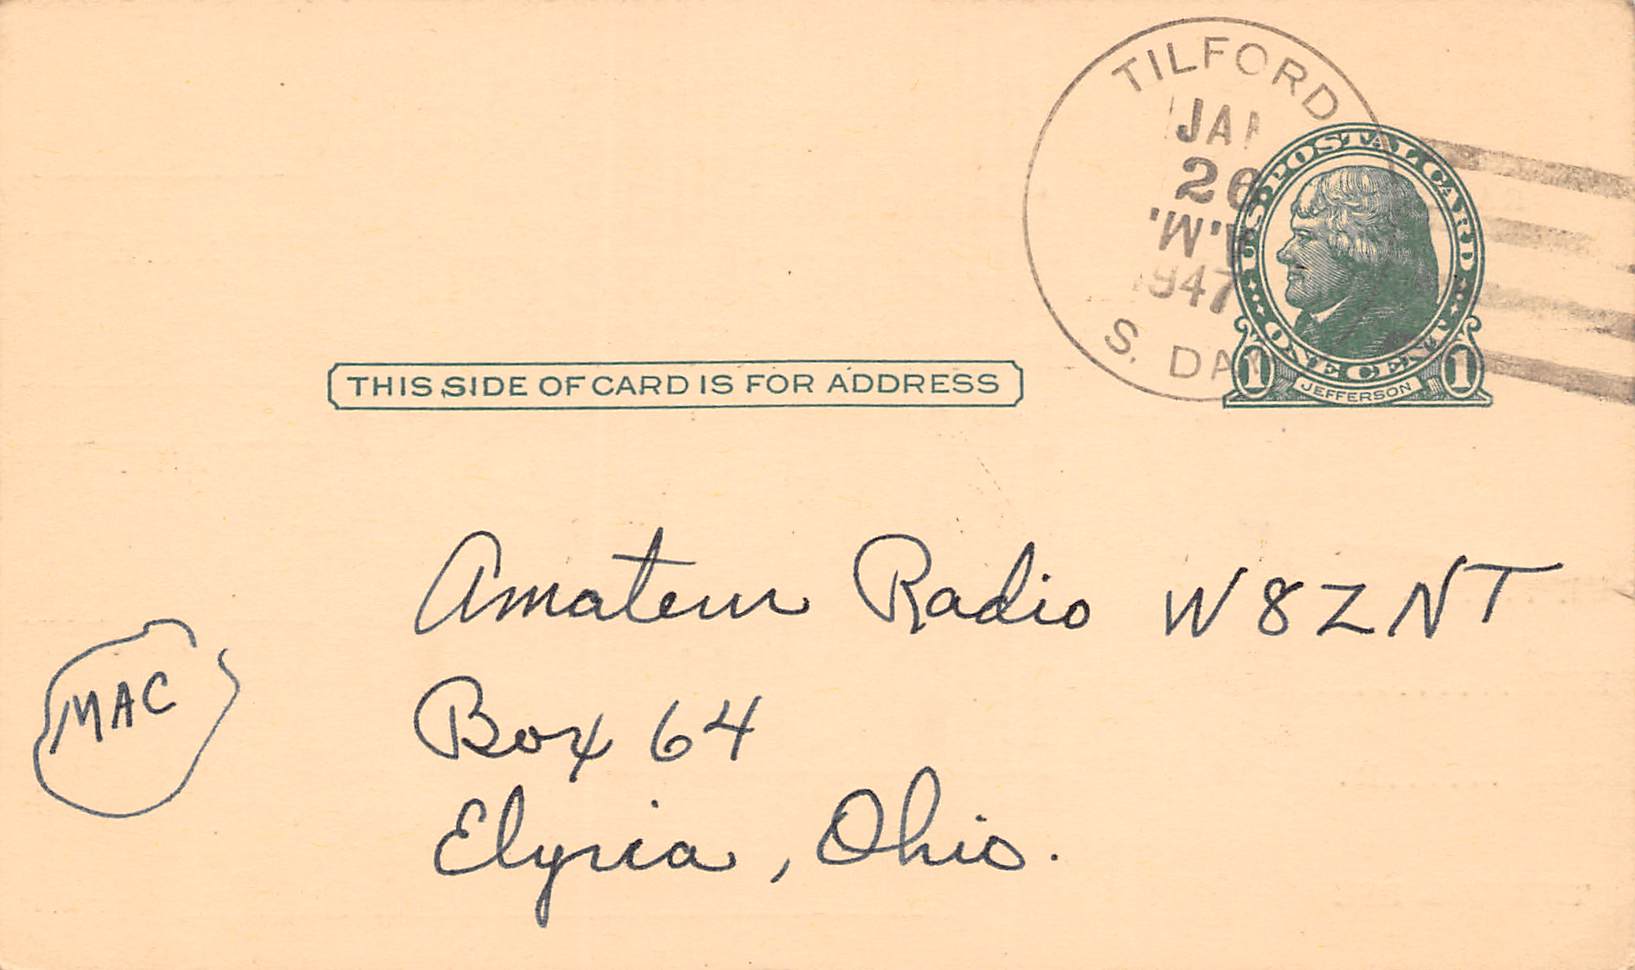 TILFORD
JAN
26
1947
S. DAK
U.S. POSTAL CARD
ONE CENT
1 JEFFERSON 1
THIS SIDE OF CARD IS FOR ADDRESS
Amateur Radio W8ZNT
Box 64
Elyria, Ohio.
MAC